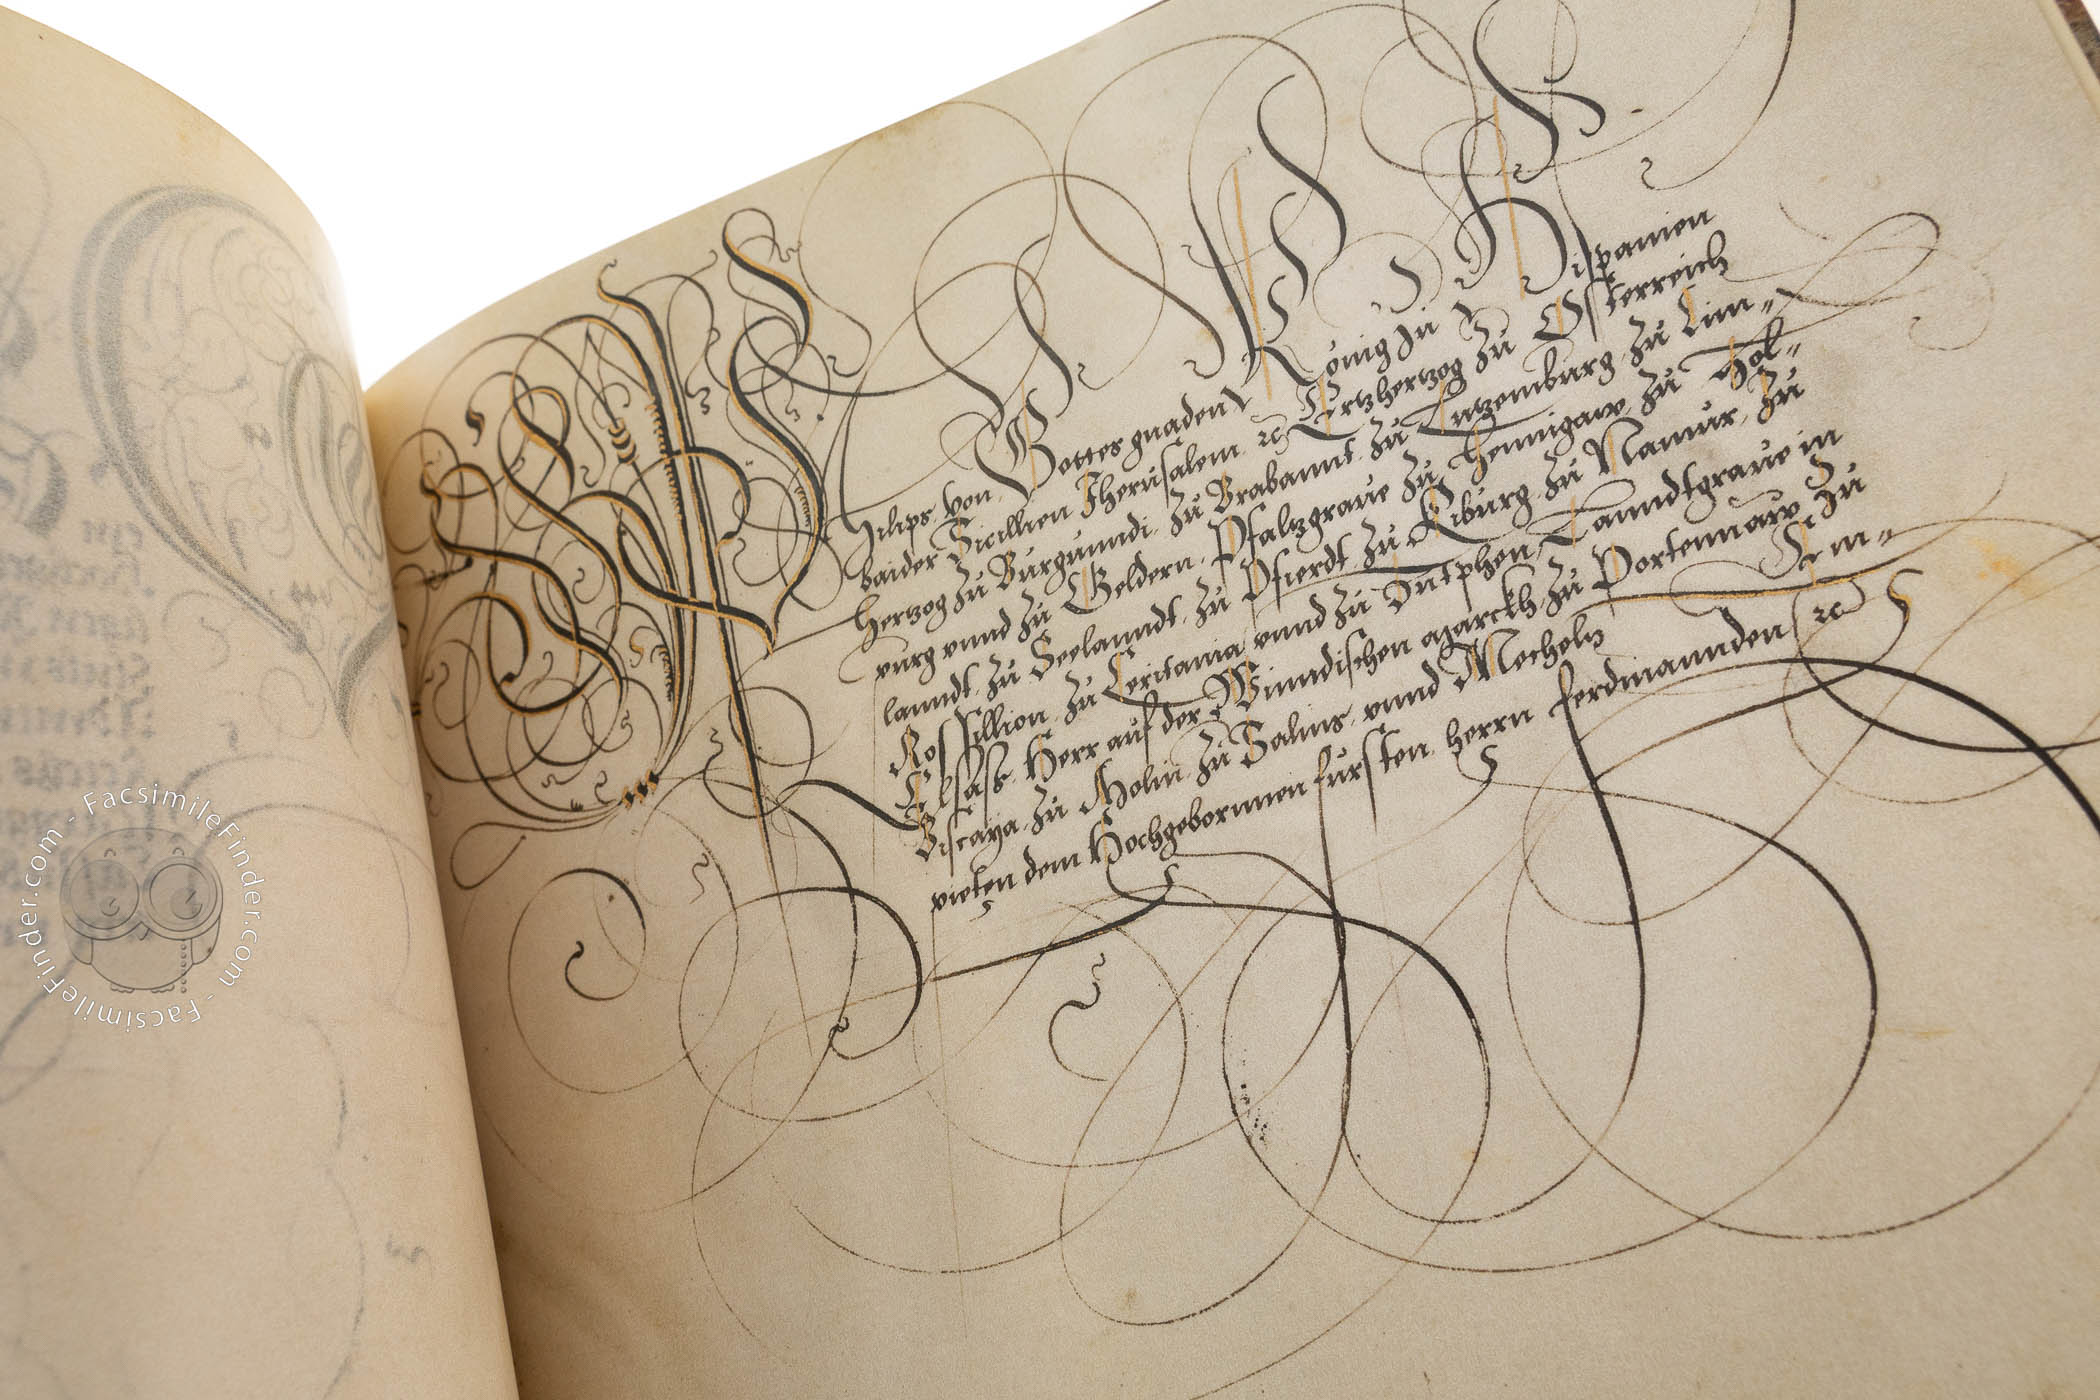 Philips von Gottes gnaden König zu Hispanien
baider Sicillien Jherusalem ꝛc Ertzhertzog zu Österreich
hertzog zu Burgunndi, zu Brabannt, zu Lutzemburg, zu Lim=
purg vnnd zu Geldern, Pfaltzgraue zu hennigaw, zu Hol=
lanndt, zu Seelanndt, zu Pfierdt, zu Kiburg, zu Namur, zu
Rossillion, zu Ceritania, vnnd zu Zutphen, Lanndtgraue in
Elsäss, Herr auf der Winndischen Marckh, zu Portennaw, zu
Biscaya, zu Molin, zu Salins, vnnd Mecheln
Em=
pieten dem Hochgebornnen fursten, herrn ferdinannden ꝛc
FacsimileFinder.com - FacsimileFinder.com - FacsimileFinder.com